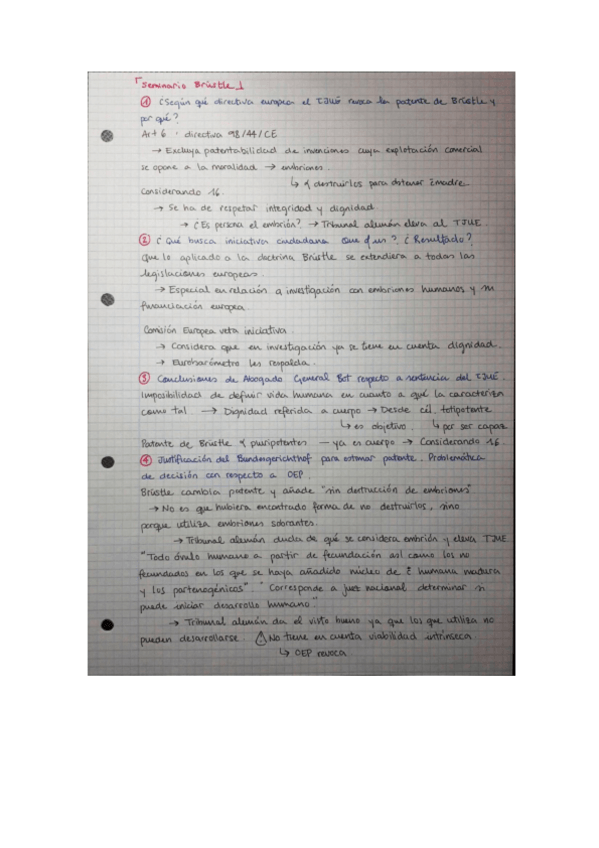 「Seminario Brüstle」
① ¿Según qué directiva europea el TJUE revoca la patente de Brüstle y
por qué?
Art 6 · directiva 98/44/CE
→ Excluye patentabilidad de invenciones cuya explotación comercial
se opone a la moralidad → embriones.
↳ destruirlos para obtener madre
Considerando 16
→ Se ha de respetar integridad y dignidad
→ ¿Es persona el embrión? → Tribunal alemán eleva al TJUE.
② ¿Qué busca iniciativa ciudadana One of us? ¿Resultado?
Que lo aplicado a la doctrina Brüstle se extendiera a todas las
legislaciones europeas.
→ Especial en relación a investigación con embriones humanos y su
financiación europea
Comisión Europea veta iniciativa.
→ Considera que en investigación ya se tiene en cuenta dignidad.
→ Eurobarómetro les respalda.
③ Conclusiones de Abogado General Bot respecto a sentencia del TJUE
Imposibilidad de definir vida humana en cuanto a qué la caracteriza
como tal → Dignidad referida a cuerpo → Desde cél. totipotente
↳ es objetivo. ↳ por ser capaz
Patente de Brüstle pluripotentes — ya es cuerpo → Considerando 16.
④ Justificación del Bundesgerichthof para estimar patente. Problemática
de decisión con respecto a OEP.
Brüstle cambia patente y añade "sin destrucción de embriones"
→ No es que hubiera encontrado forma de no destruirlos, sino
porque utiliza embriones sobrantes.
→ Tribunal alemán duda de qué se considera embrión y eleva TJUE
"Todo óvulo humano a partir de fecundación así como los no
fecundados en los que se haya añadido núcleo de humana madura
y los partenogénicos" "Corresponde a juez nacional determinar si
puede iniciar desarrollo humano"
→ Tribunal alemán da el visto bueno ya que los que utiliza no
pueden desarrollarse. ⚠ No tiene en cuenta viabilidad intrínseca
↳ OEP revoca